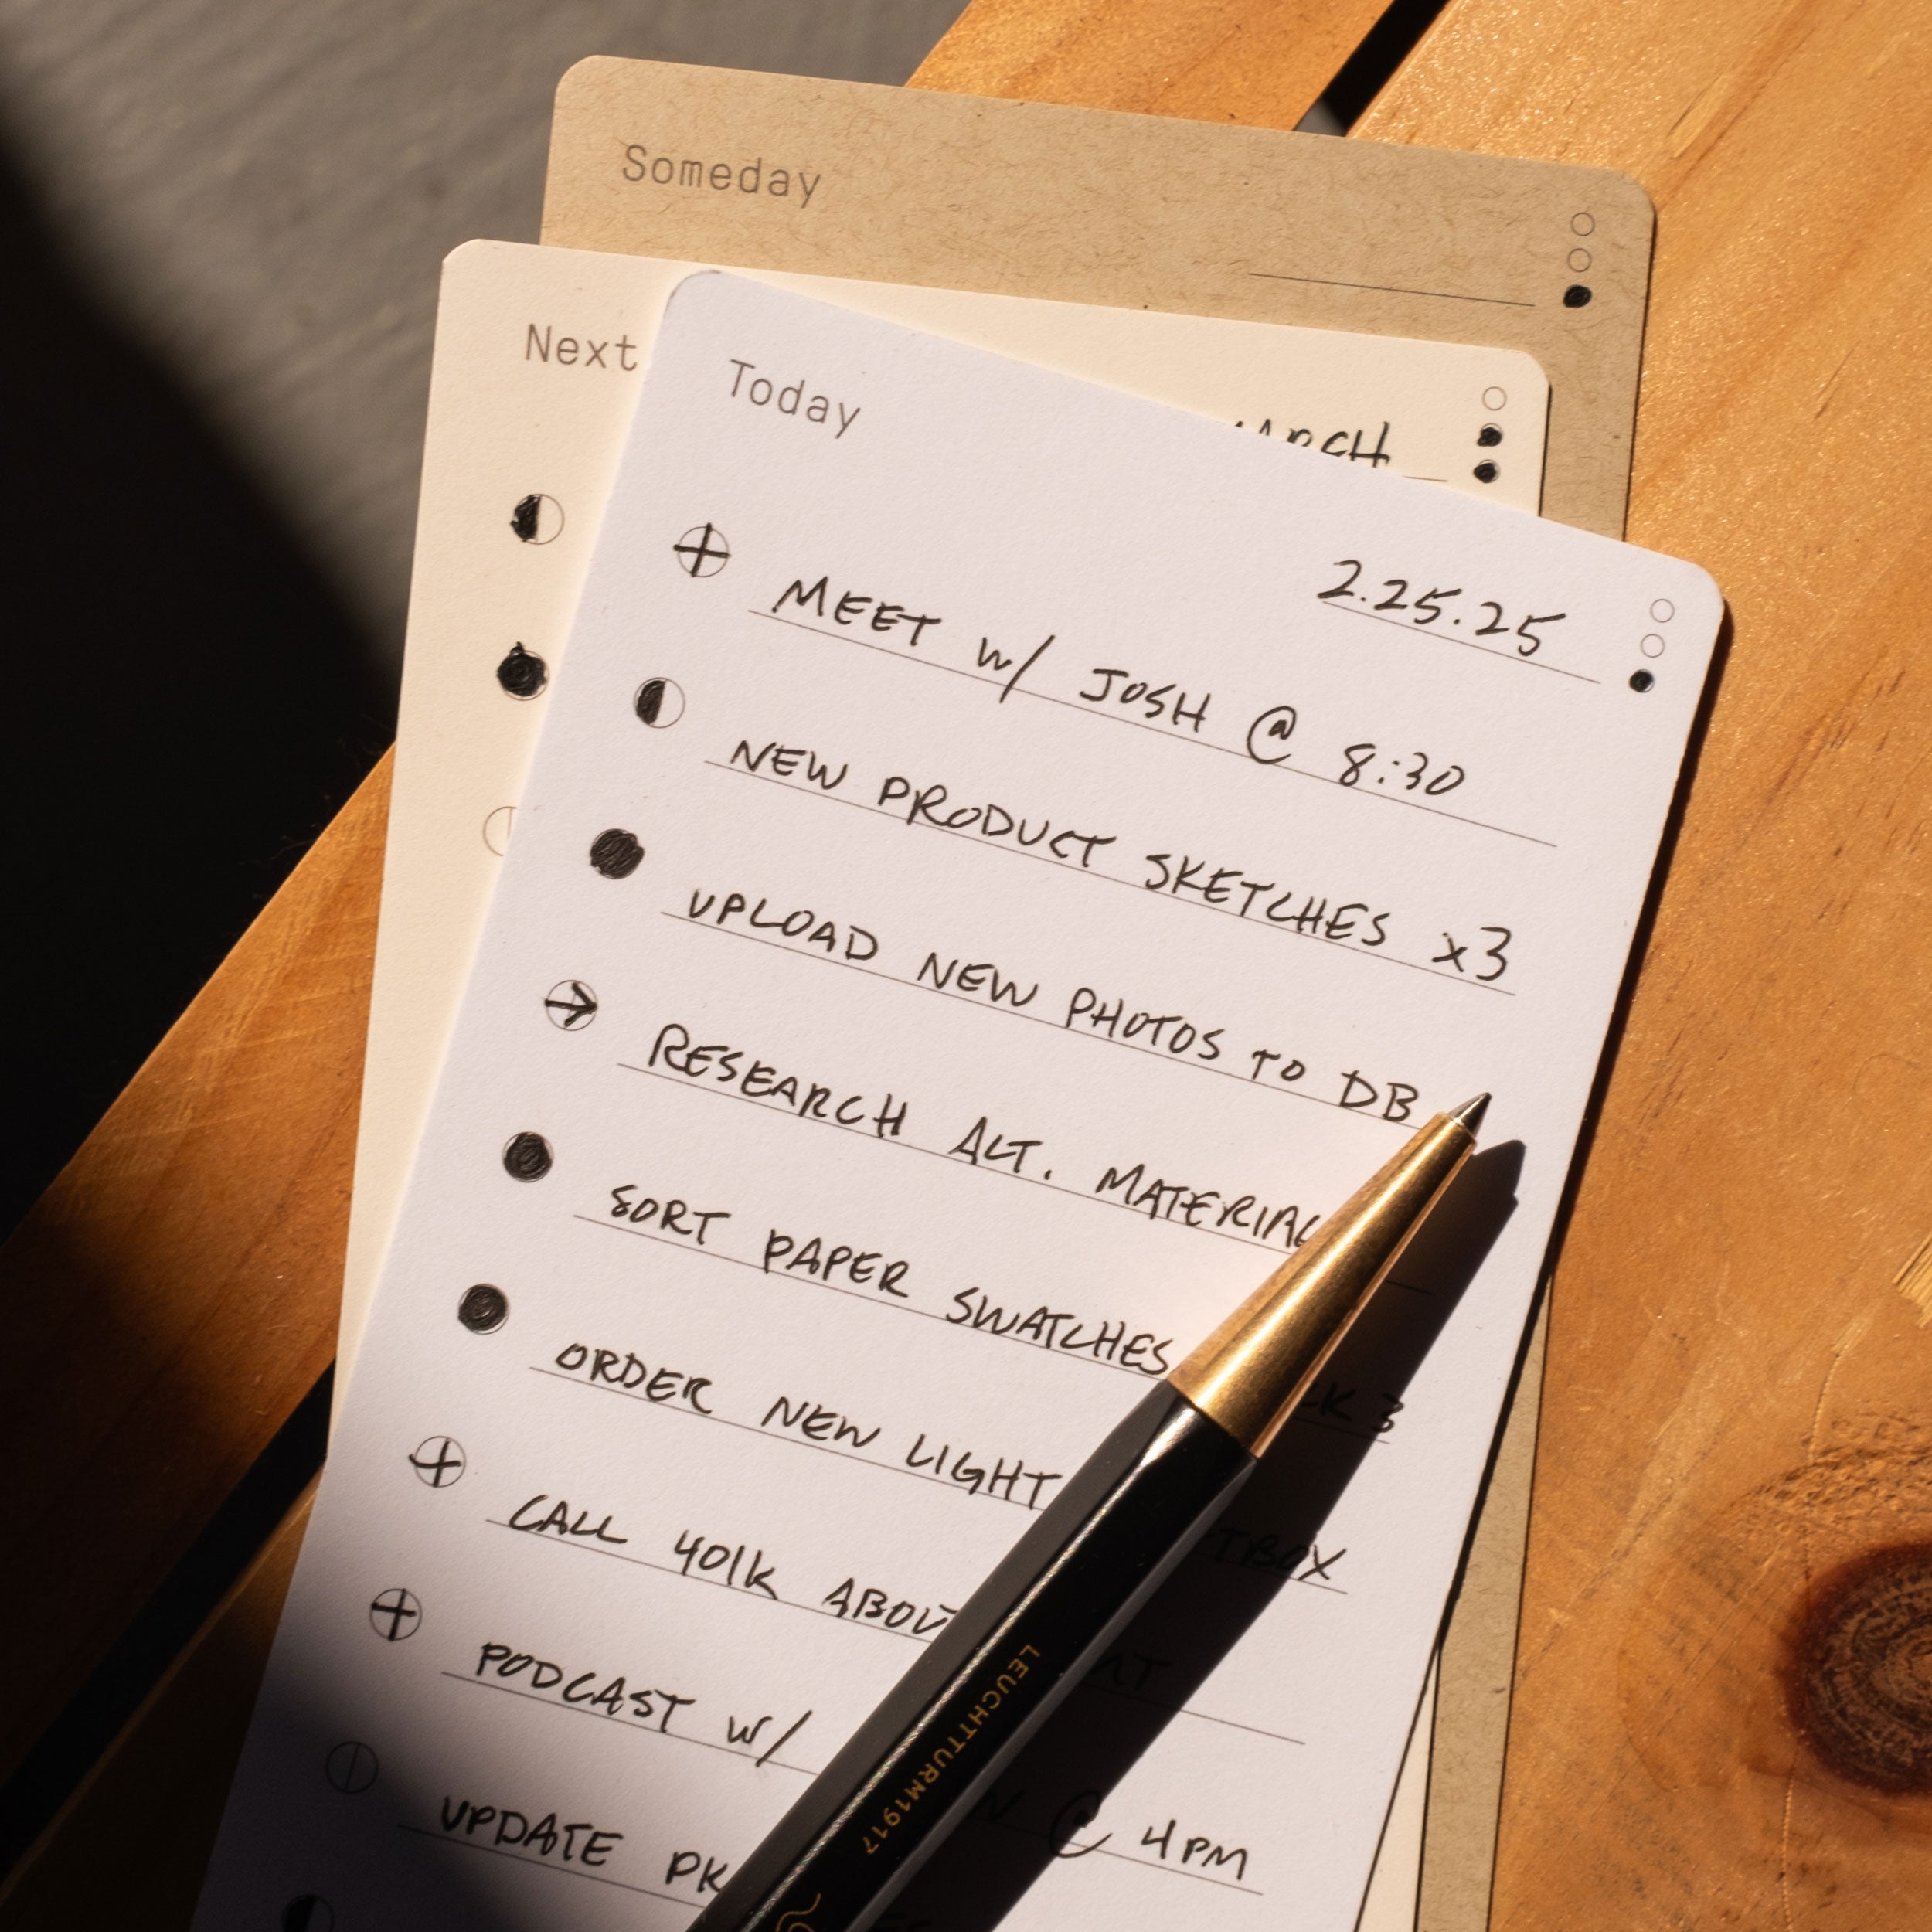 Someday
Next
Today
2.25.25
MEET W/ JOSH @ 8:30
NEW PRODUCT SKETCHES x3
UPLOAD NEW PHOTOS TO DB
RESEARCH ALT.
SORT PAPER SWATCHES 3
ORDER NEW LIGHT
CALL 401K
PODCAST W/ @ 4PM
UPDATE
LEUCHTTURM1917